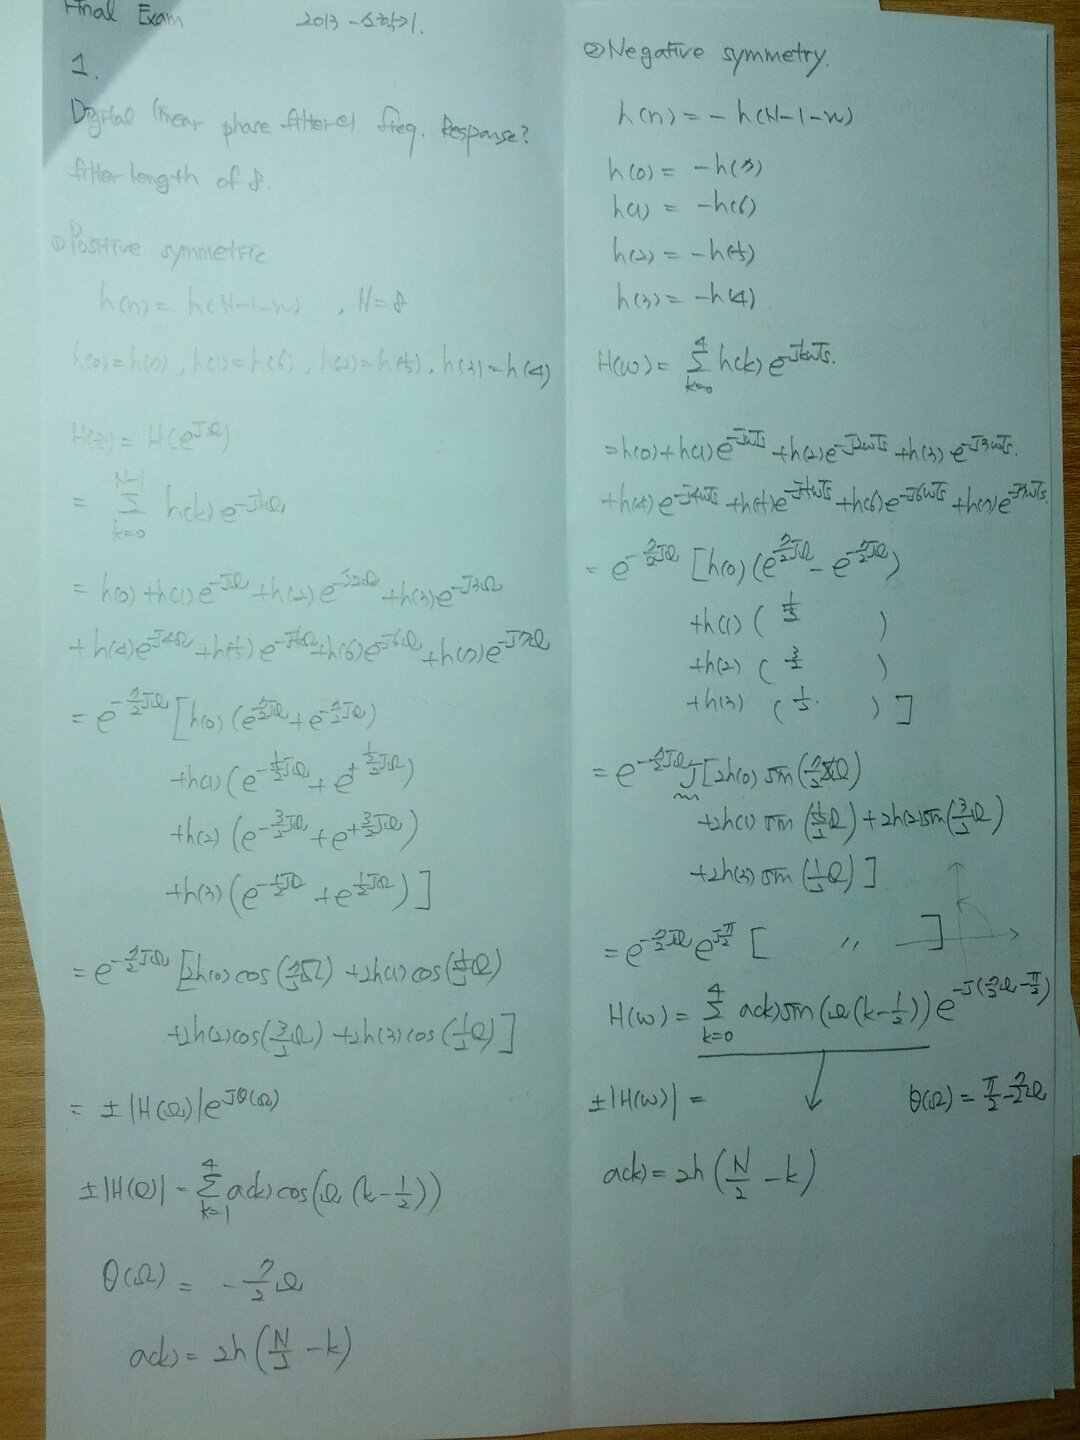 Final Exam 2013-소학기.
1.
Digital linear phase filter의 freq. Response?
filter length of 8.
① Positive symmetric
h(n) = h(N-1-n) , N=8
h(0)=h(7), h(1)=h(6), h(2)=h(5), h(3)=h(4)
H(z) = H(e^{JΩ})
= Σ_{k=0}^{N-1} h(k) e^{-JkΩ}
= h(0) + h(1)e^{-JΩ} + h(2)e^{-J2Ω} + h(3)e^{-J3Ω}
+ h(4)e^{-J4Ω} + h(5)e^{-J5Ω} + h(6)e^{-J6Ω} + h(7)e^{-J7Ω}
= e^{-7/2 JΩ} [h(0) (e^{7/2 JΩ} + e^{-7/2 JΩ})
+h(1) (e^{-5/2 JΩ} + e^{+5/2 JΩ})
+h(2) (e^{-3/2 JΩ} + e^{+3/2 JΩ})
+h(3) (e^{-1/2 JΩ} + e^{1/2 JΩ}) ]
= e^{-7/2 JΩ} [2h(0) cos(7/2 Ω) + 2h(1) cos(5/2 Ω)
+2h(2) cos(3/2 Ω) + 2h(3) cos(1/2 Ω) ]
= ± |H(Ω)| e^{Jθ(Ω)}
± |H(Ω)| = Σ_{k=1}^{4} a(k) cos(Ω (k - 1/2))
θ(Ω) = - 7/2 Ω
a(k) = 2h (N/2 - k)
② Negative symmetry.
h(n) = - h(N-1-n)
h(0) = -h(7)
h(1) = -h(6)
h(2) = -h(5)
h(3) = -h(4)
H(w) = Σ_{k=0}^{4} h(k) e^{-JkwTs}.
= h(0) + h(1) e^{-JwTs} + h(2) e^{-J2wTs} + h(3) e^{-J3wTs}.
+h(4) e^{-J4wTs} + h(5) e^{-J5wTs} + h(6) e^{-J6wTs} + h(7) e^{-J7wTs}.
= e^{-7/2 JΩ} [h(0) (e^{7/2 JΩ} - e^{-7/2 JΩ})
+h(1) ( 5/2 )
+h(2) ( 3/2 )
+h(3) ( 1/2. ) ]
= e^{-7/2 JΩ} J [2h(0) sin(7/2 Ω)
+2h(1) sin (5/2 Ω) + 2h(2) sin(3/2 Ω)
+2h(3) sin (1/2 Ω) ]
= e^{-7/2 JΩ} e^{J π/2} [ 〃 ]
H(w) = Σ_{k=0}^{4} a(k) sin(Ω(k - 1/2)) e^{-J(7/2 Ω - π/2)}
±|H(w)| = θ(Ω) = π/2 - 7/2 Ω
a(k) = 2h (N/2 - k)